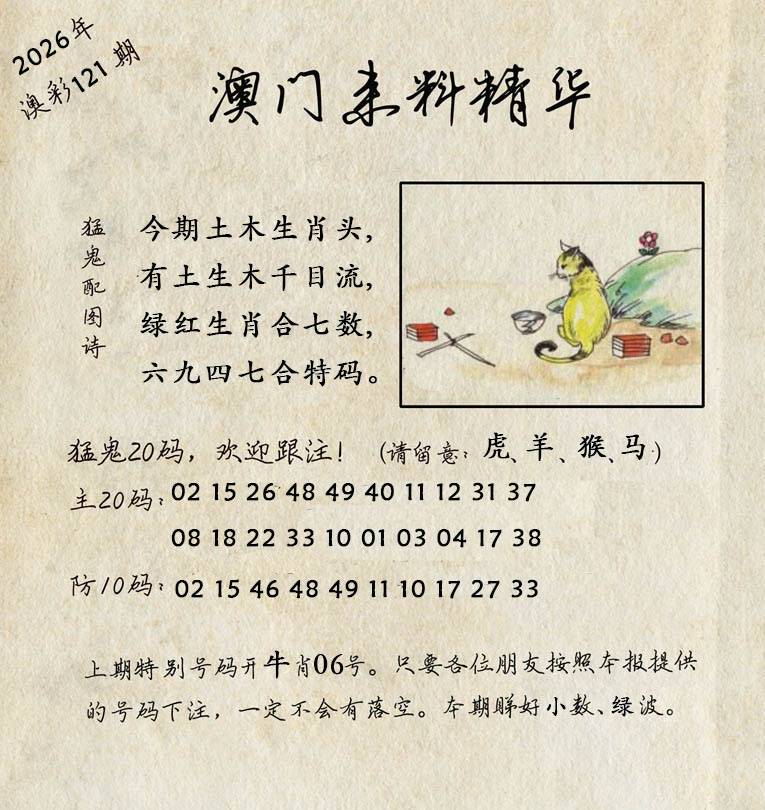 2026年
澳彩121期
澳门来料精华
猛鬼配图诗
今期土木生肖头，
有土生木千目流，
绿红生肖合七数，
六九四七合特码。
猛鬼20码，欢迎跟注！（请留意：虎、羊、猴、马）
主20码：02 15 26 48 49 40 11 12 31 37
08 18 22 33 10 01 03 04 17 38
防10码：02 15 46 48 49 11 10 17 27 33
上期特别号码开牛肖06号。只要各位朋友按照本报提供
的号码下注，一定不会有落空。本期睇好小数、绿波。